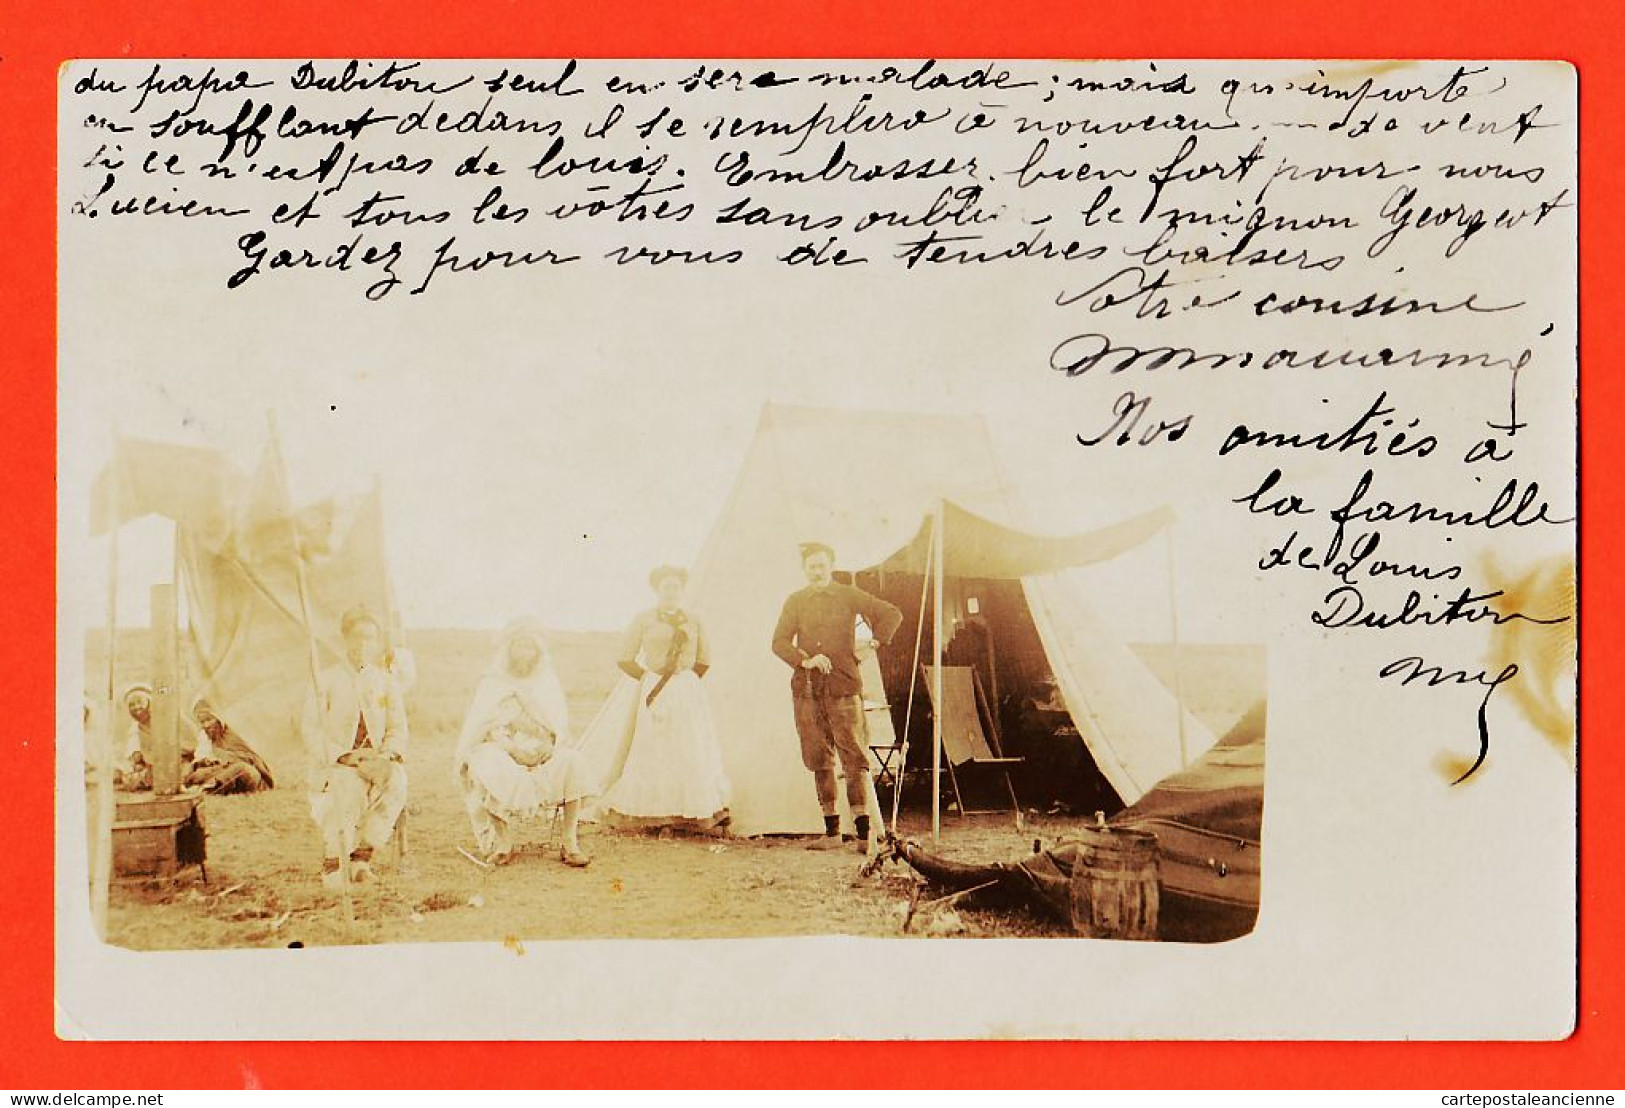 du papa Dubiton seul en sera malade ; mais qu'importe
en soufflant dedans il se remplira à nouveau de vent
si ce n'est pas de louis. Embrasser bien fort pour nous
Lucien et tous les vôtres sans oublier le mignon Georget
Gardez pour vous de tendres baisers
Votre cousine
Nos amitiés à
la famille
de Louis
Dubiton
my-bro-75
cartepostaleancienne